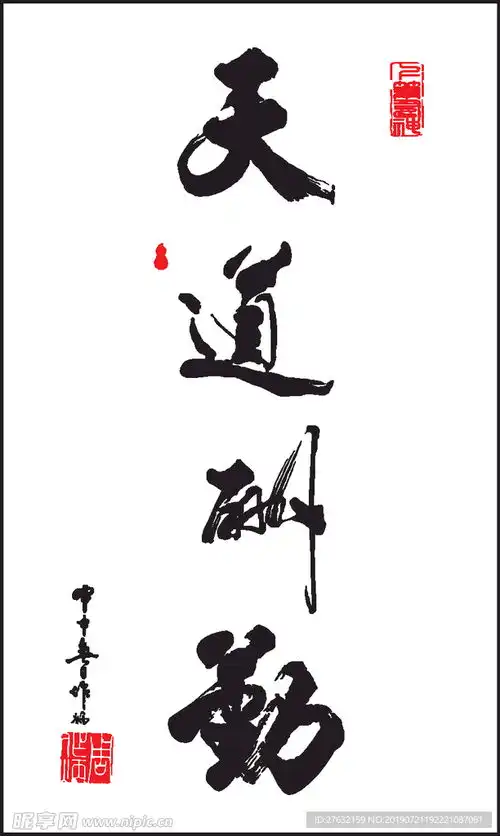 天道酬勤
昵享网 www.nipic.cn
ID:27632159 NO:20190721192221087061